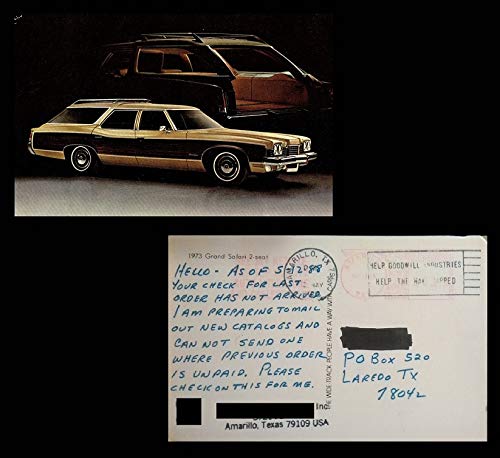 1973 Grand Safari 2-seat
HELLO - AS OF 5-12-88
YOUR CHECK FOR LAST
ORDER HAS NOT ARRIVED.
I AM PREPARING TO MAIL
OUT NEW CATALOGS AND
CAN NOT SEND ONE
WHERE PREVIOUS ORDER
IS UNPAID. PLEASE
CHECK ON THIS FOR ME.
Inc
Amarillo, Texas 79109 USA
THE WIDE-TRACK PEOPLE HAVE A WAY WITH CARS
AMARILLO, TX
HELP GOODWILL INDUSTRIES
HELP THE
PO BOX 520
LAREDO TX
78042